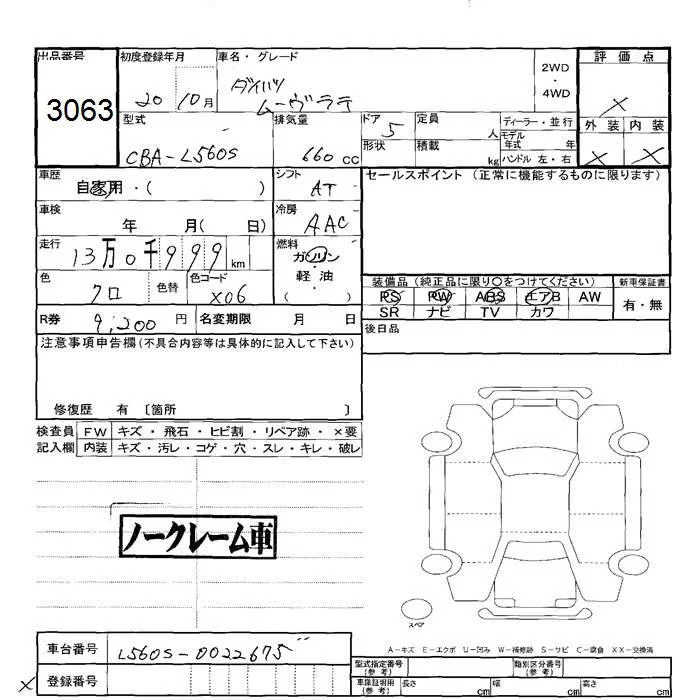 出品番号
3063
初度登録年月
20 10月
車名・グレード
ダイハツ
ムーヴラテ
2WD
・
4WD
評価点
X
外装 内装
X X
型式
CBA-L560S
排気量
660 CC
ドア 5
形状
定員 人
積載 kg
ディーラー・並行
モデル年式 年
ハンドル 左・右
車歴
自家用・( )
シフト
AT
セールスポイント (正常に機能するものに限ります)
車検
年 月( 日)
冷房
AAC
走行
13万0千999 km
燃料
ガソリン
軽・油
( )
色
クロ
色替
色コード
X06
装備品(純正品に限り○をつけてください)
PS PW ABS エアB AW
SR ナビ TV カワ
新車保証書
有・無
R券 9,200 円
名変期限 月 日
後日品
注意事項申告欄(不具合内容等は具体的に記入して下さい)
修復歴 有 〔箇所 〕
検査員 FW キズ・飛石・ヒビ割・リペア跡・×要
記入欄 内装 キズ・汚レ・コゲ・穴・スレ・キレ・破レ
ノークレーム車
スペア
A-キズ E-エクボ U-凹み W-補修跡 S-サビ C-腐食 XX-交換済
車台番号 L560S-0022675
X 登録番号
型式指定番号(参考)
類別区分番号(参考)
車庫証明用(参考) 長さ cm 幅 cm 高さ cm